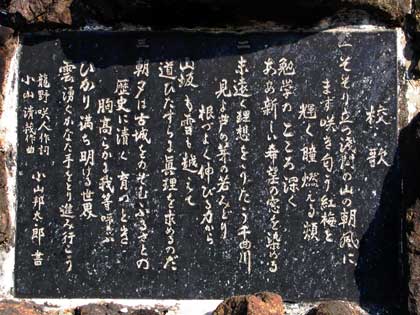 校歌
一 そそり立つ浅間の山の朝風に
まず咲き匂う紅梅を
輝く瞳燃える頬
勉学のところ深く
ああ新しい希望の窓を染める
二 末遠く理想をとりたう千曲川
見よ芦の芽の若みどり
根づよく伸びる力から
山坂も雪も越えて
道ひたすら真理を求めるのだ
三 朝夕は古城の芝生ふるさとの
歴史に清く育つとき
胸高らか我等呼ぶ
ひかり満ち明ける世界
雲湧くかなた手をとり進み行こう
龍野咲人作詞
小山清茂作曲 小山邦太郎書